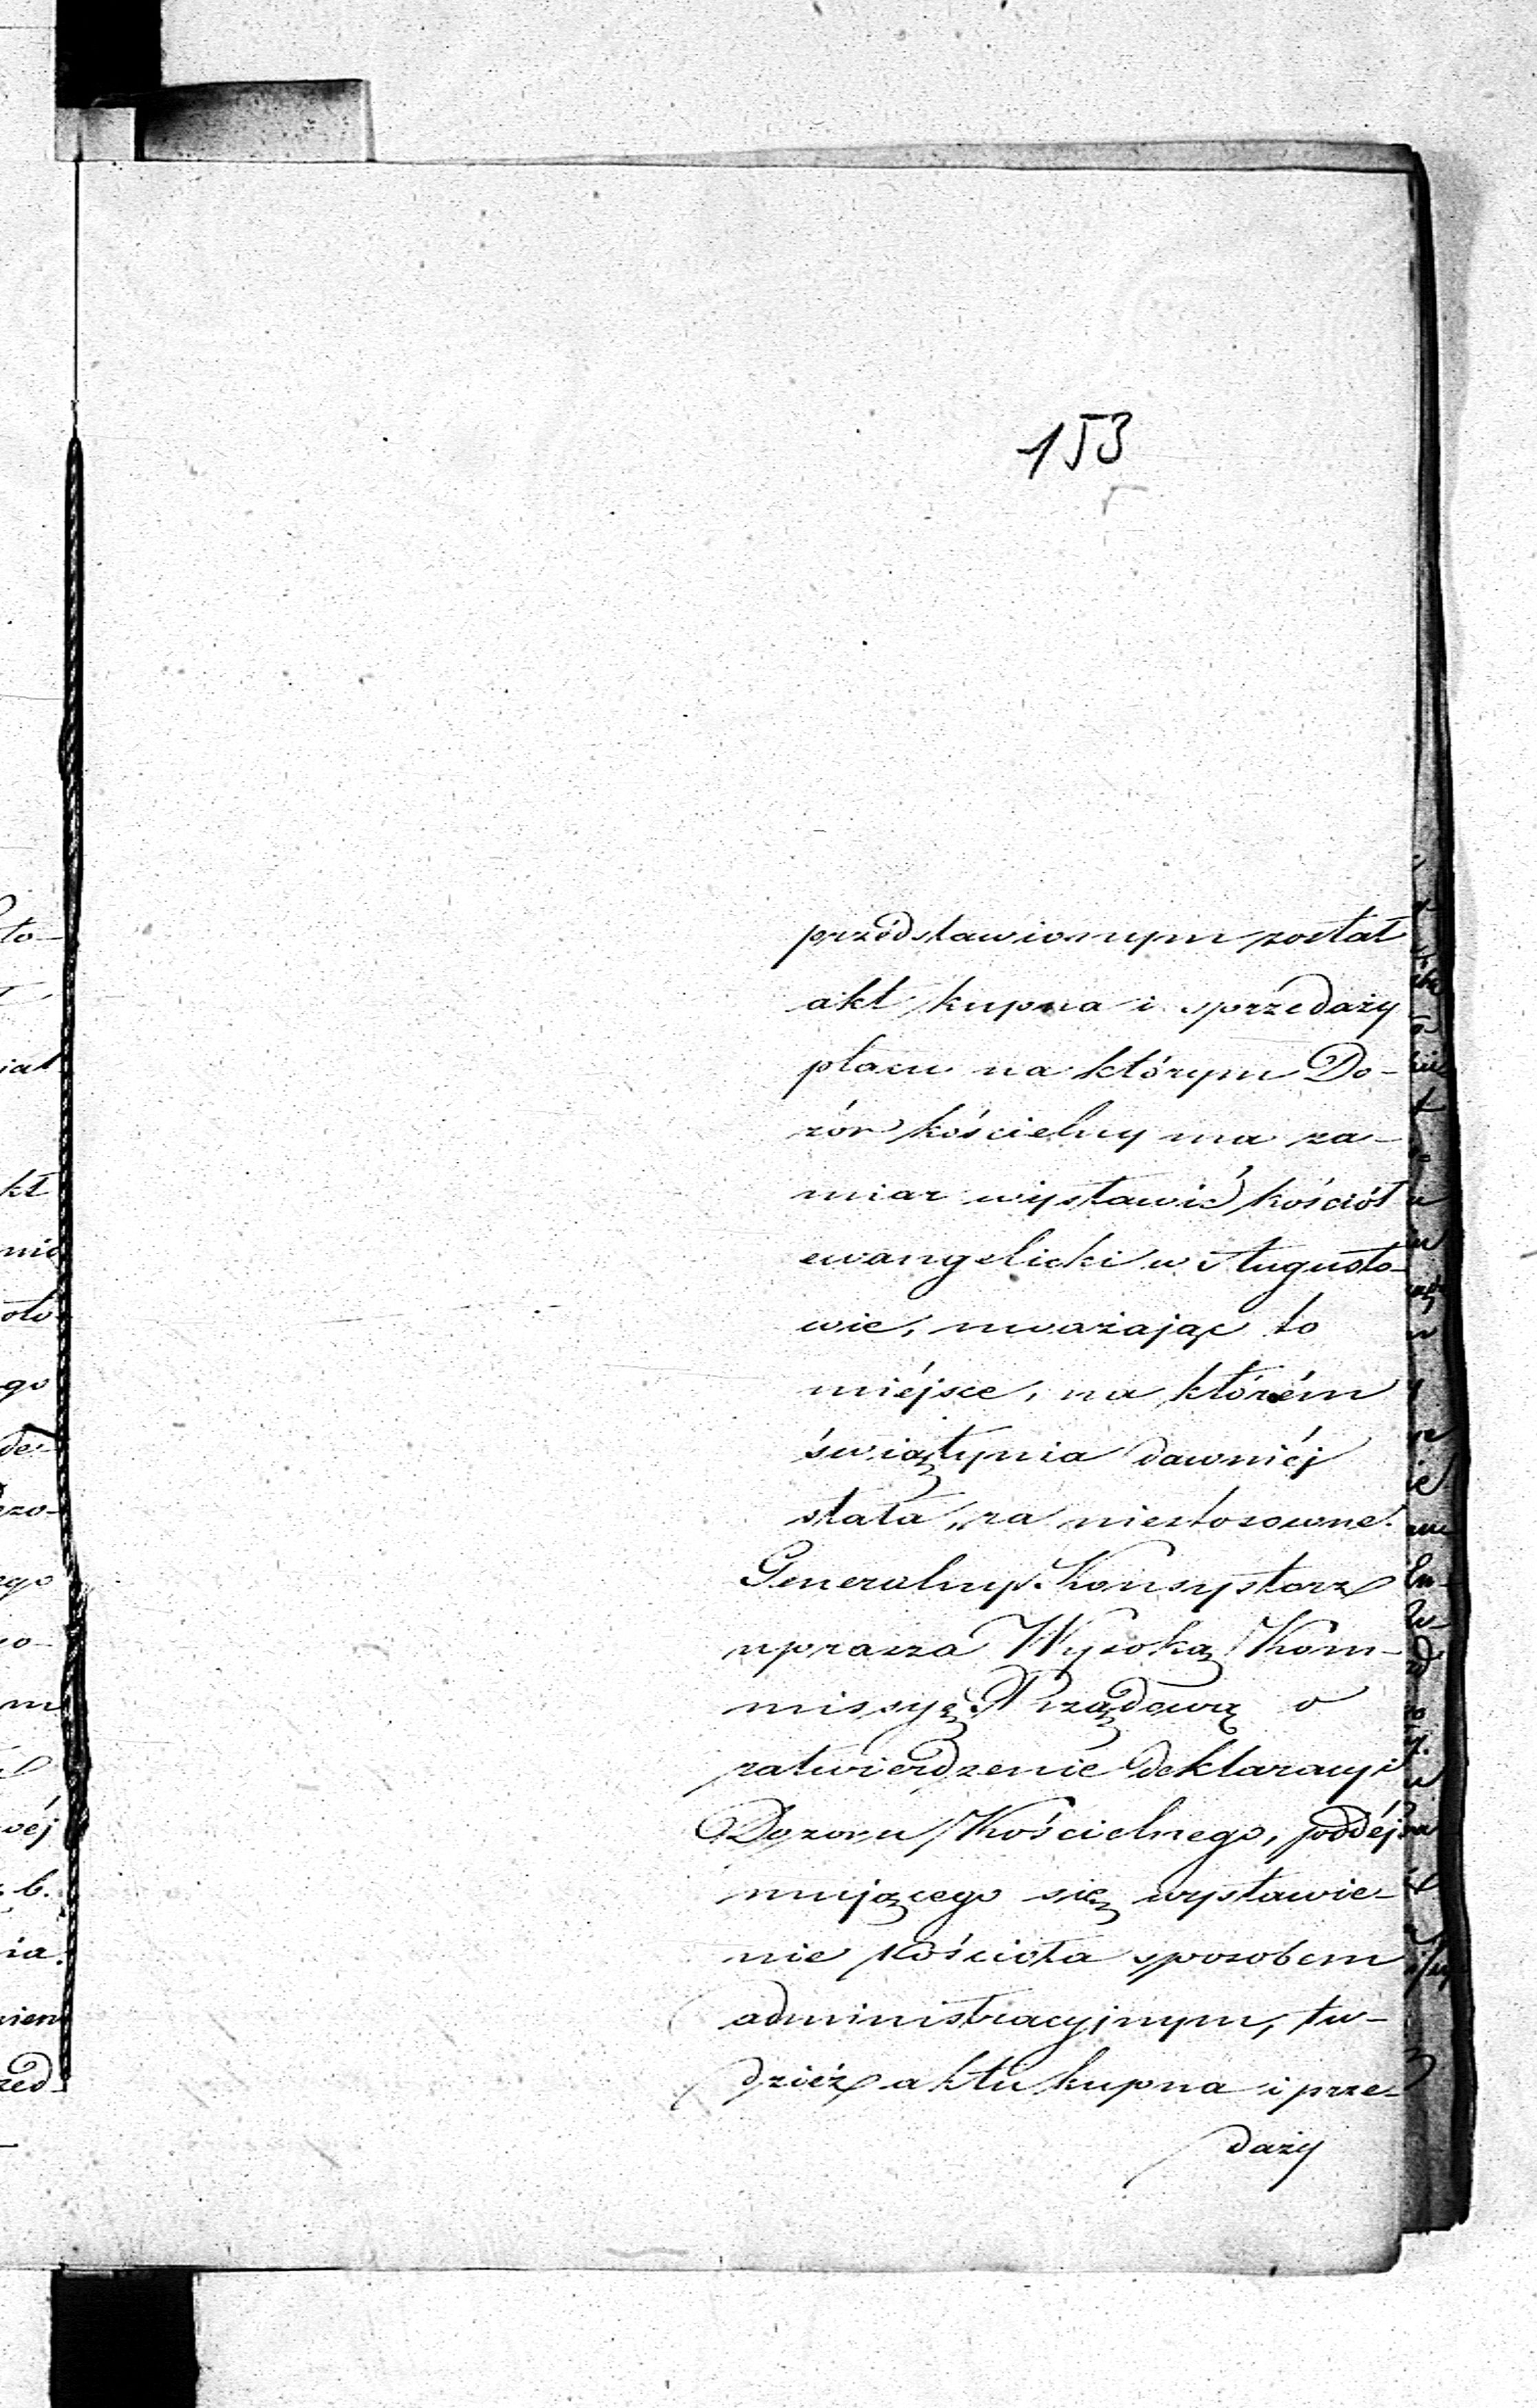 153
przedstawionym został
akt kupna i sprzedaży
placu na którym Do-
zór kościelny ma za-
miar wystawić kościół
ewangelicki w Augusto-
wie, uważając to
miéjsce, na którém
świątynia dawniéj
stała, za niestosowne.
Generalny Konsystorz
uprasza Wysoką Kom-
missyę Rządową o
zatwierdzenie deklaracyi
Dozoru Kościelnego, podéj-
mującego się wystawie-
nie kościoła sposobem
administracyjnym, tu-
dzież aktu kupna i prze-
daży